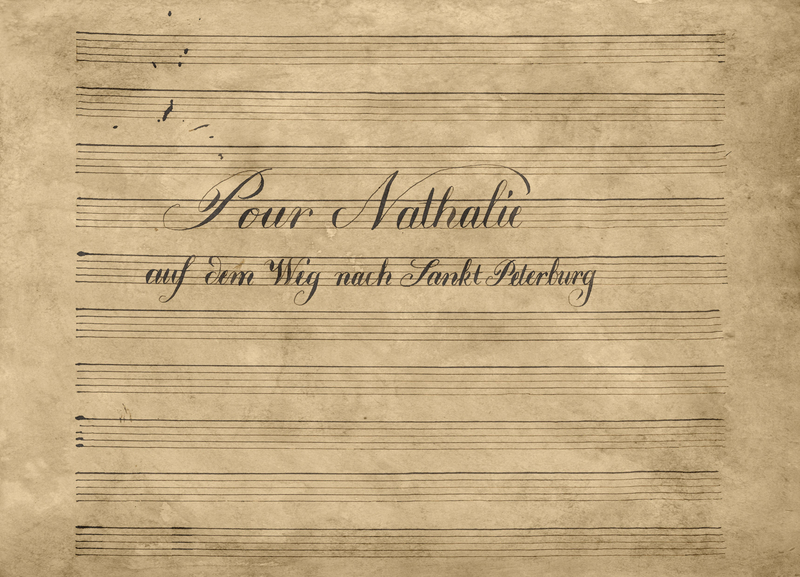 Pour Nathalie
auf dem Weg nach Sankt Peterburg